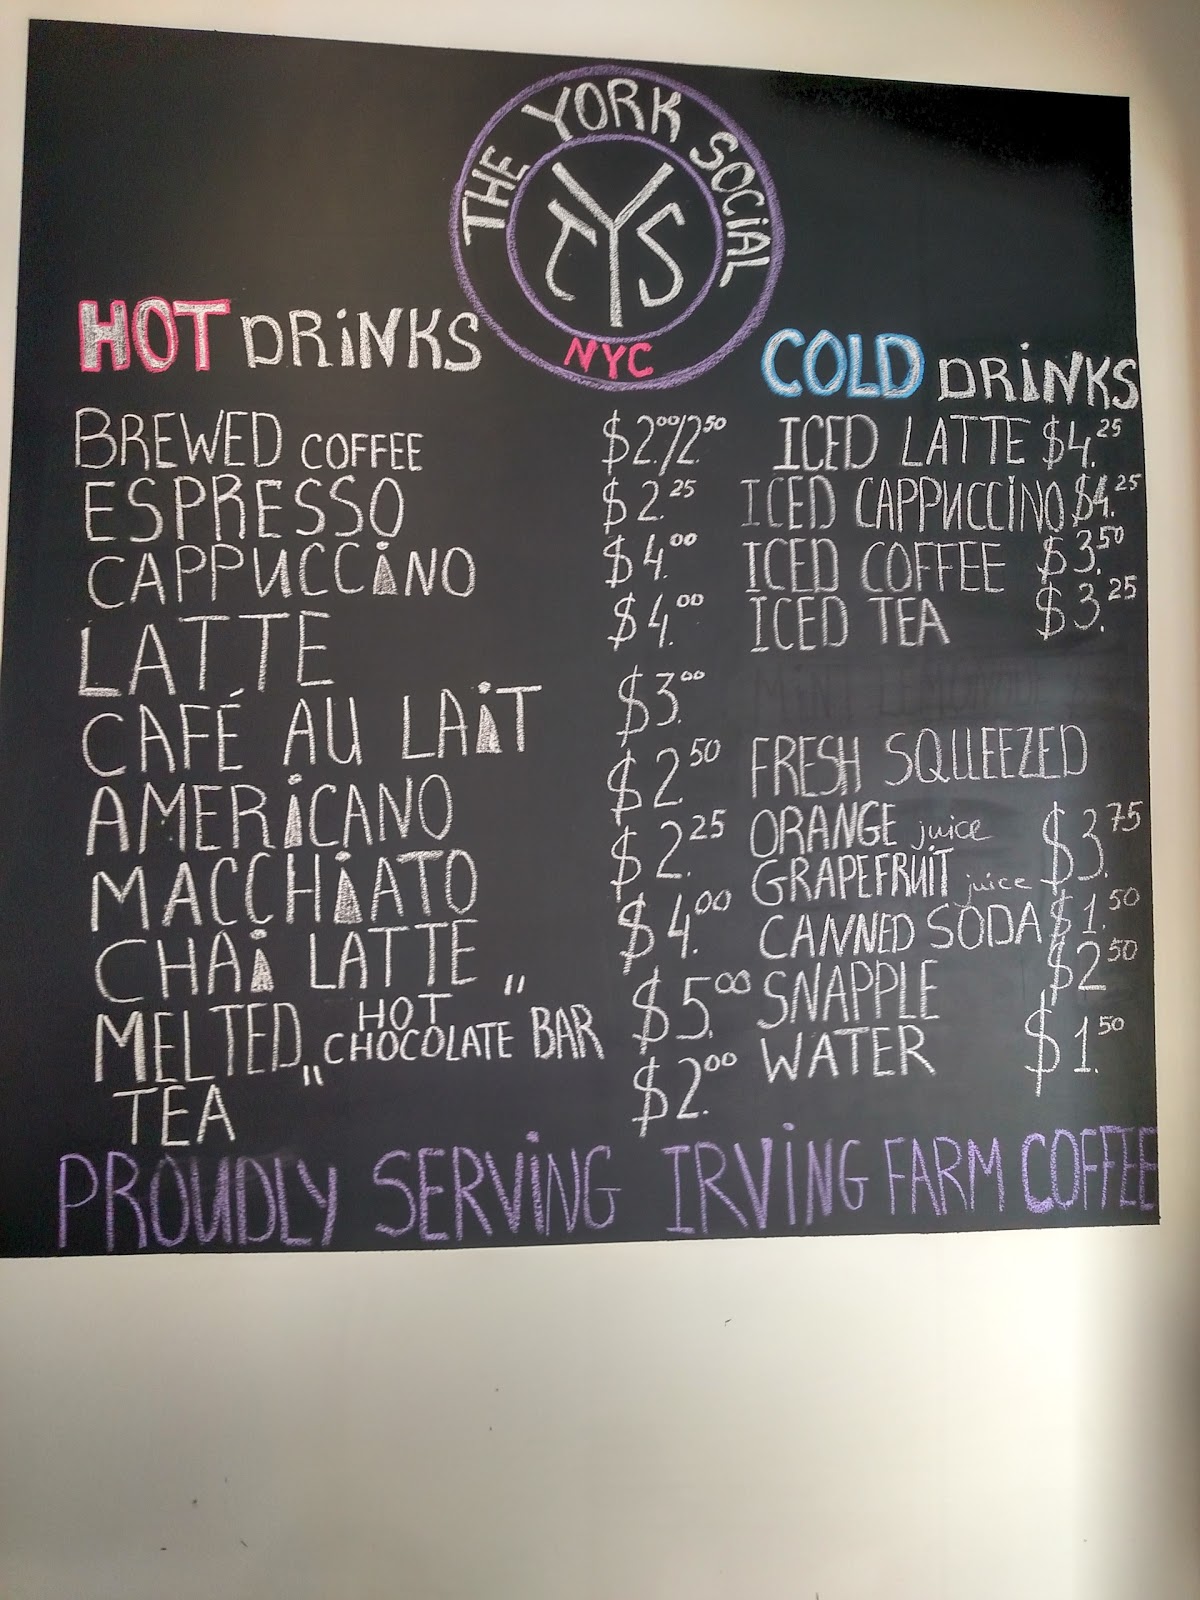 THE YORK SOCIAL
TYS
NYC
HOT DRINKS
BREWED COFFEE $2.00/2.50
ESPRESSO $2.25
CAPPUCCINO $4.00
LATTE $4.00
CAFÉ AU LAIT $3.00
AMERICANO $2.50
MACCHIATO $2.25
CHAI LATTE $4.00
MELTED "HOT CHOCOLATE" BAR $5.00
TEA $2.00
COLD DRINKS
ICED LATTE $4.25
ICED CAPPUCCINO $4.25
ICED COFFEE $3.50
ICED TEA $3.25
MINT LEMONADE
FRESH SQUEEZED
ORANGE juice
GRAPEFRUIT juice $3.75
CANNED SODA $1.50
SNAPPLE $2.50
WATER $1.50
PROUDLY SERVING IRVING FARM COFFEE